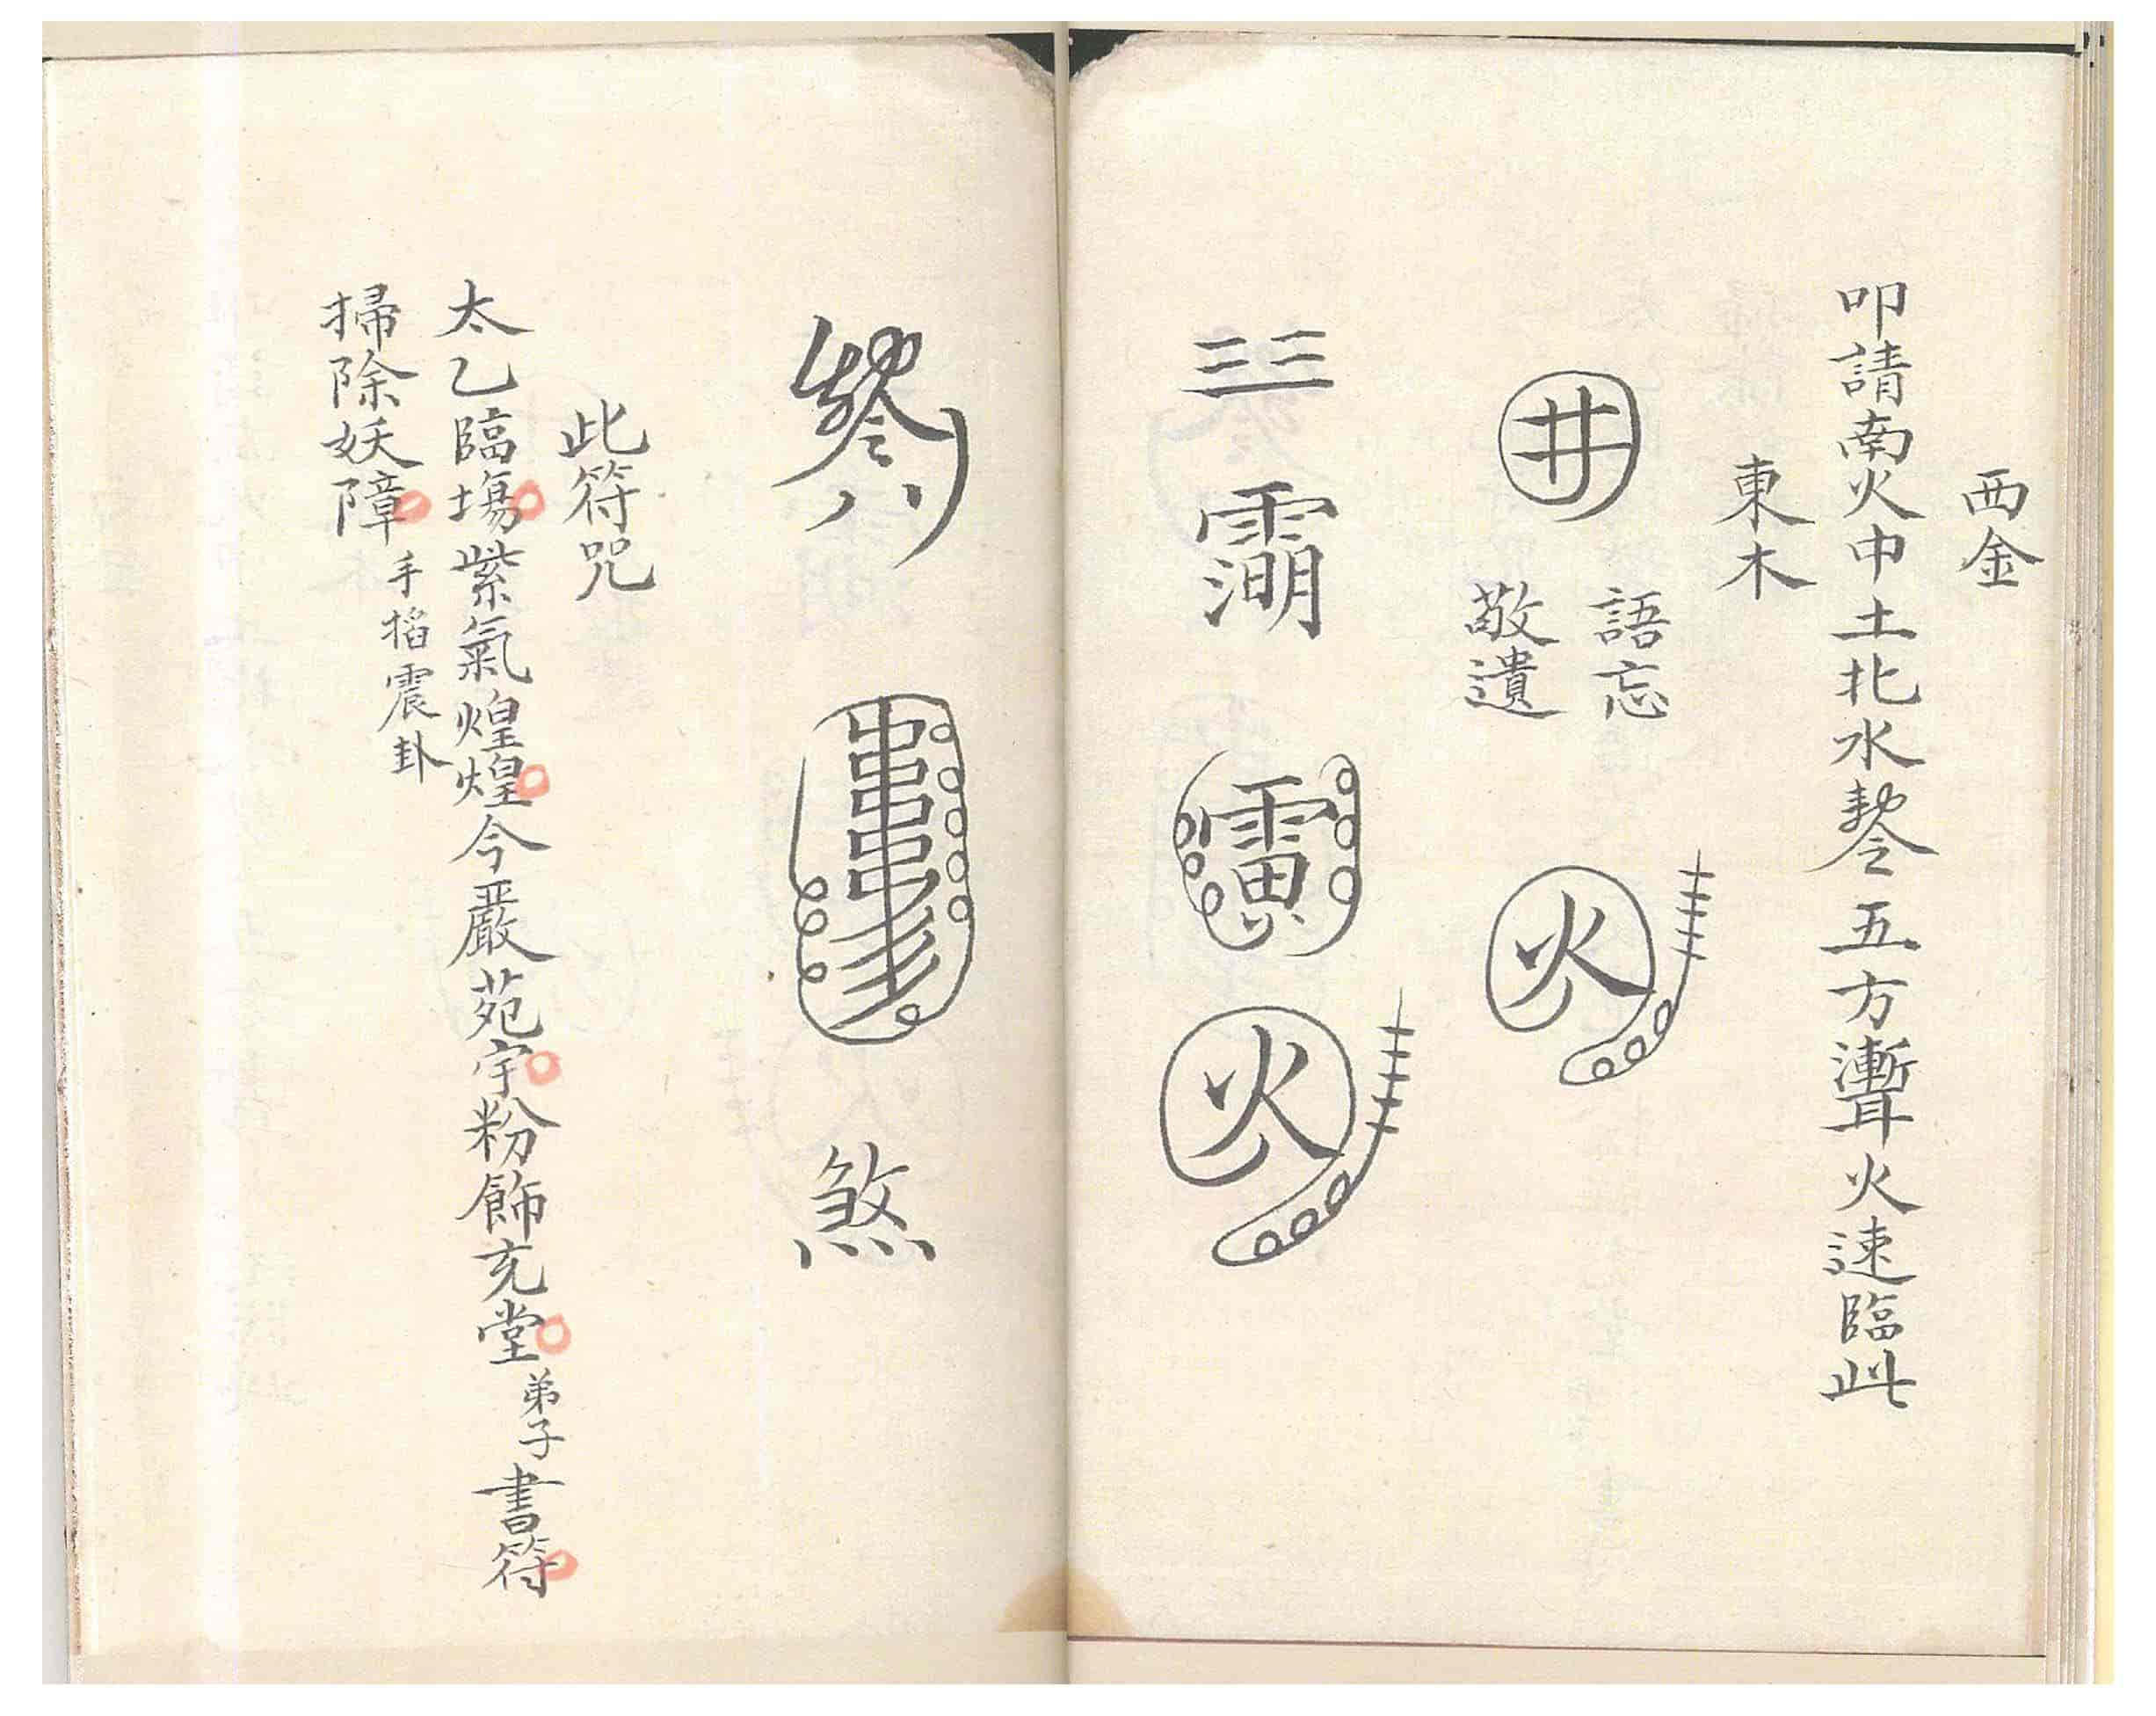 西金
叩請南火中土北水
五方
火速臨此
東木
語忘
敬遺
井
火
火
煞
此符咒
太乙臨塲紫氣煌煌今嚴苑宇粉飾充堂弟子書符
掃除妖障手掐震卦